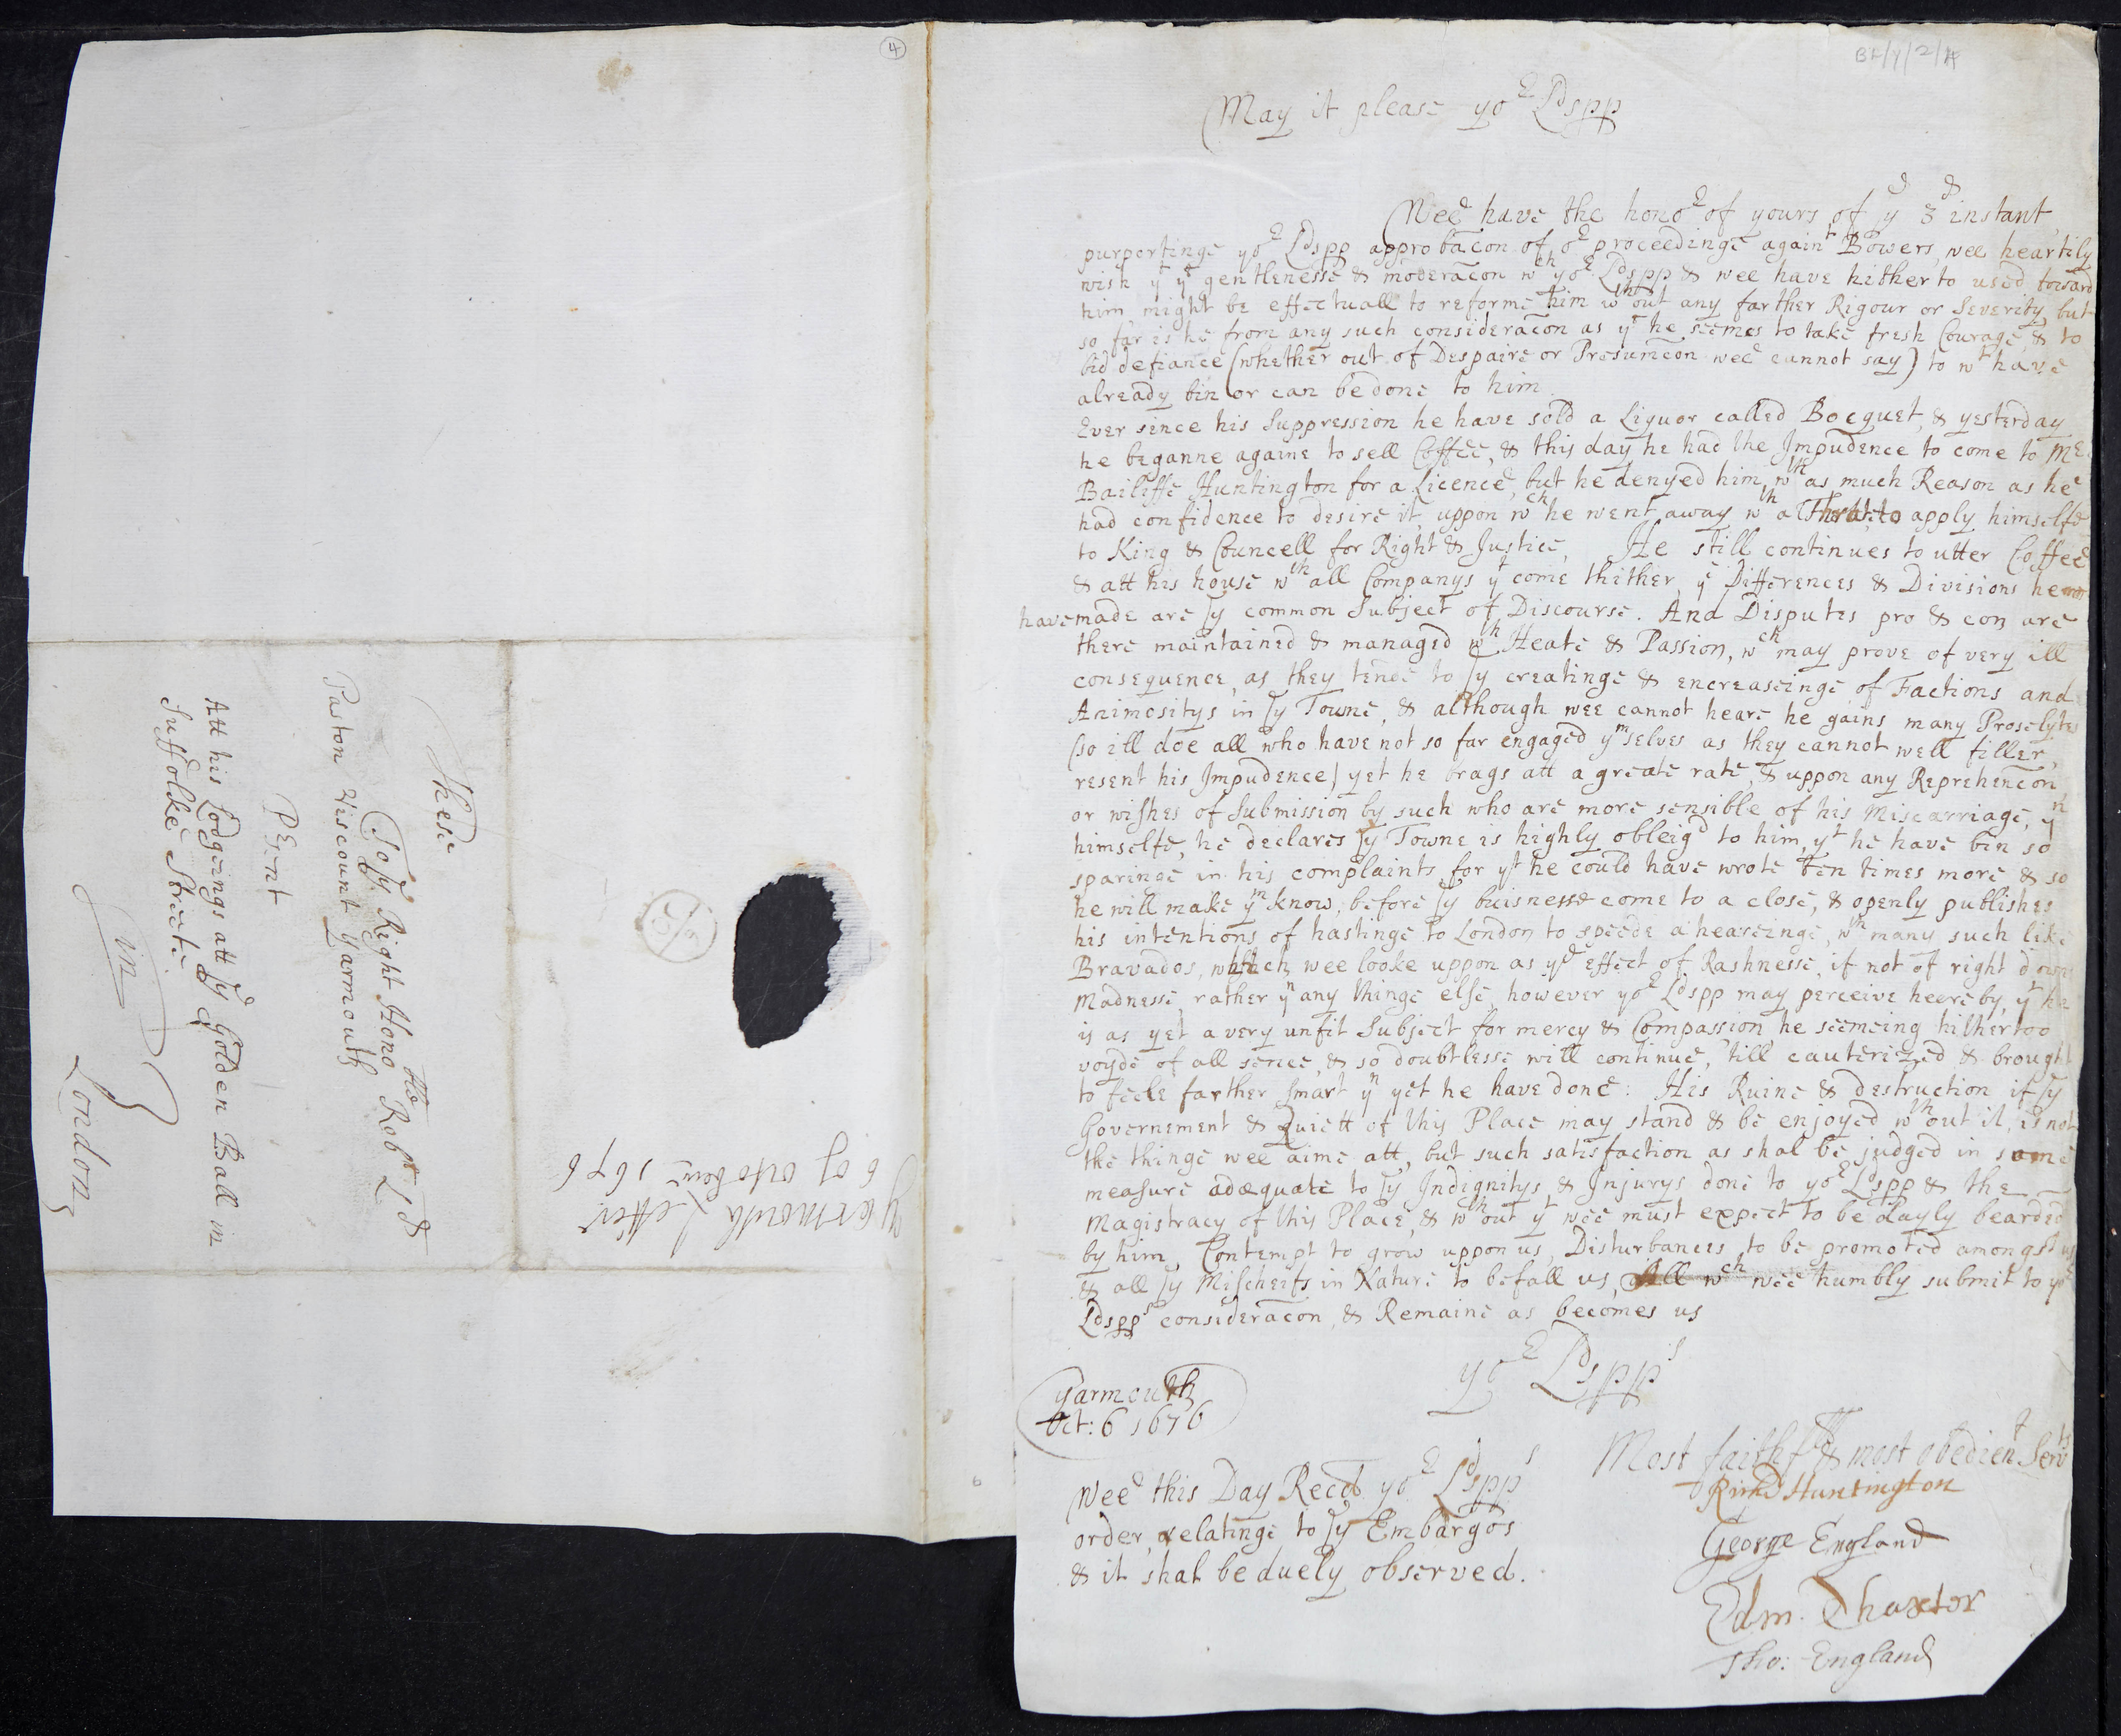 BL/Y/2/4
May it please yor Ldspp
Wee have the honor of yours of ye 3d instant
purportinge yor Ldspp approbacon of or proceedinge againt Bowers, wee heartily
wish yt ye gentlenesse & moderacon wch yor Ldspp & wee have hitherto used toward
him might be effectuall to reforme him wthout any farther Rigour or Severity, but
so far is he from any such consideracon as yt he seemes to take fresh Courage & to
bid defiance (whether out of Despaire or Presumcon wee cannot say) to wt have
already bin or can be done to him
Ever since his Suppression he have sold a Liquor called Bocquet, & yesterday
he beganne againe to sell Coffee, & this day he had the Impudence to come to Mr
Bailiffe Huntington for a Licence, but he denyed him wth as much Reason as hee
had confidence to desire it, uppon wch he went away wth a Threate to apply himselfe
to King & Councell for Right & Justice, He still continues to utter Coffee
& att his house wth all Companys yt come thither, ye Differences & Divisions he
have made are ye common Subject of Discourse. And Disputes pro & con are
there maintained & managed wth Heate & Passion, wch may prove of very ill
consequence, as they tende to ye creatinge & encreaseinge of Factions and
Animositys in ye Towne, & although wee cannot heare he gains many Proselytes
(so ill doe all who have not so far engaged ymselves as they cannot well filler,
resent his Impudence) yet he brags att a greate rate, & uppon any Reprehencon
or wishes of Submission by such who are more sensible of his Miscarriage, yn
himselfe, he declares ye Towne is highly obleigd to him, yt he have bin so
sparinge in his complaints, for yt he could have wrote ten times more & so
he will make ym know, before ye buisnesse come to a close, & openly publishes
his intentions of hastinge to London to speede a heareinge, wth many such like
Bravados, which wee looke uppon as ye effect of Rashnesse, if not of right down
Madnesse, rather yn any thinge else, however yor Ldspp may perceive heereby, yt he
is as yet a very unfit Subject for mercy & Compassion he seemeing hithertoo
voyde of all sence, & so doubtlesse will continue, 'till cauterized & brought
to feele farther Smart yn yet he have done: His Ruine & destruction if ye
Government & Quiett of this Place may stand & be enjoyed wthout it, is not
the thinge wee aime att, but such satisfaction as shal be judged in some
measure adæquate to ye Indignitys & Injurys done to yor Ldspp & the
Magistracy of this Place, & wthout yt wee must expect to be dayly bearded
by him, Contempt to grow uppon us, Disturbances to be promoted amongst us
& all ye Mischeifs in Nature to befall us, All wch wee humbly submit to yor
Ldspps consideracon, & Remaine as becomes us
yor Ldspps
Most faithfll & most obedient Servts
Yarmouth
Oct: 6 1676
Richd Huntington
George England
Edm. Thaxter
Tho: England
Wee this Day Recd yor Ldspps
order, relatinge to ye Embargos
& it shal be duely observed.
4
These
To ye Right Honoble Robt Ld
Paston Viscount Yarmouth
Psent
Att his Lodgeings att ye Golden Ball in
Suffolke Streete
in
London
Yarmouth Letter
6 of october 1676